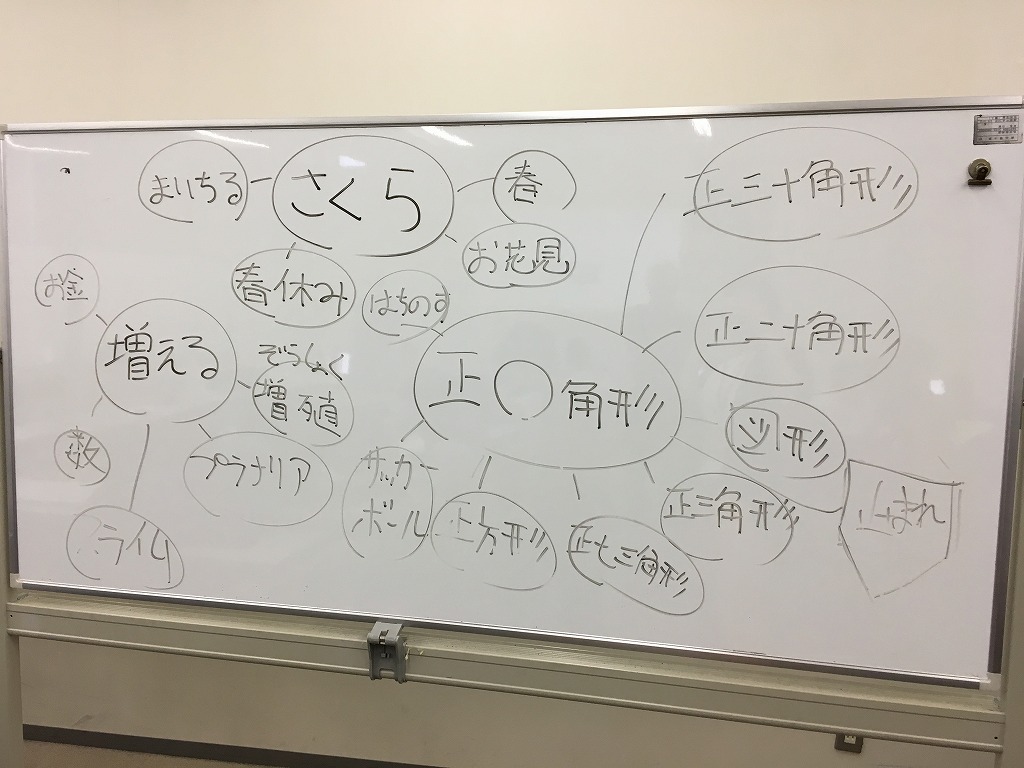 まいちる
さくら
春
お花見
春休み
正三十角形
お金
増える
ぞうしょく
増殖
数
プラナリア
スライム
はちのす
正〇角形
正二十角形
図形
正三角形
サッカー
ボール
正方形
正七三角形
止まれ